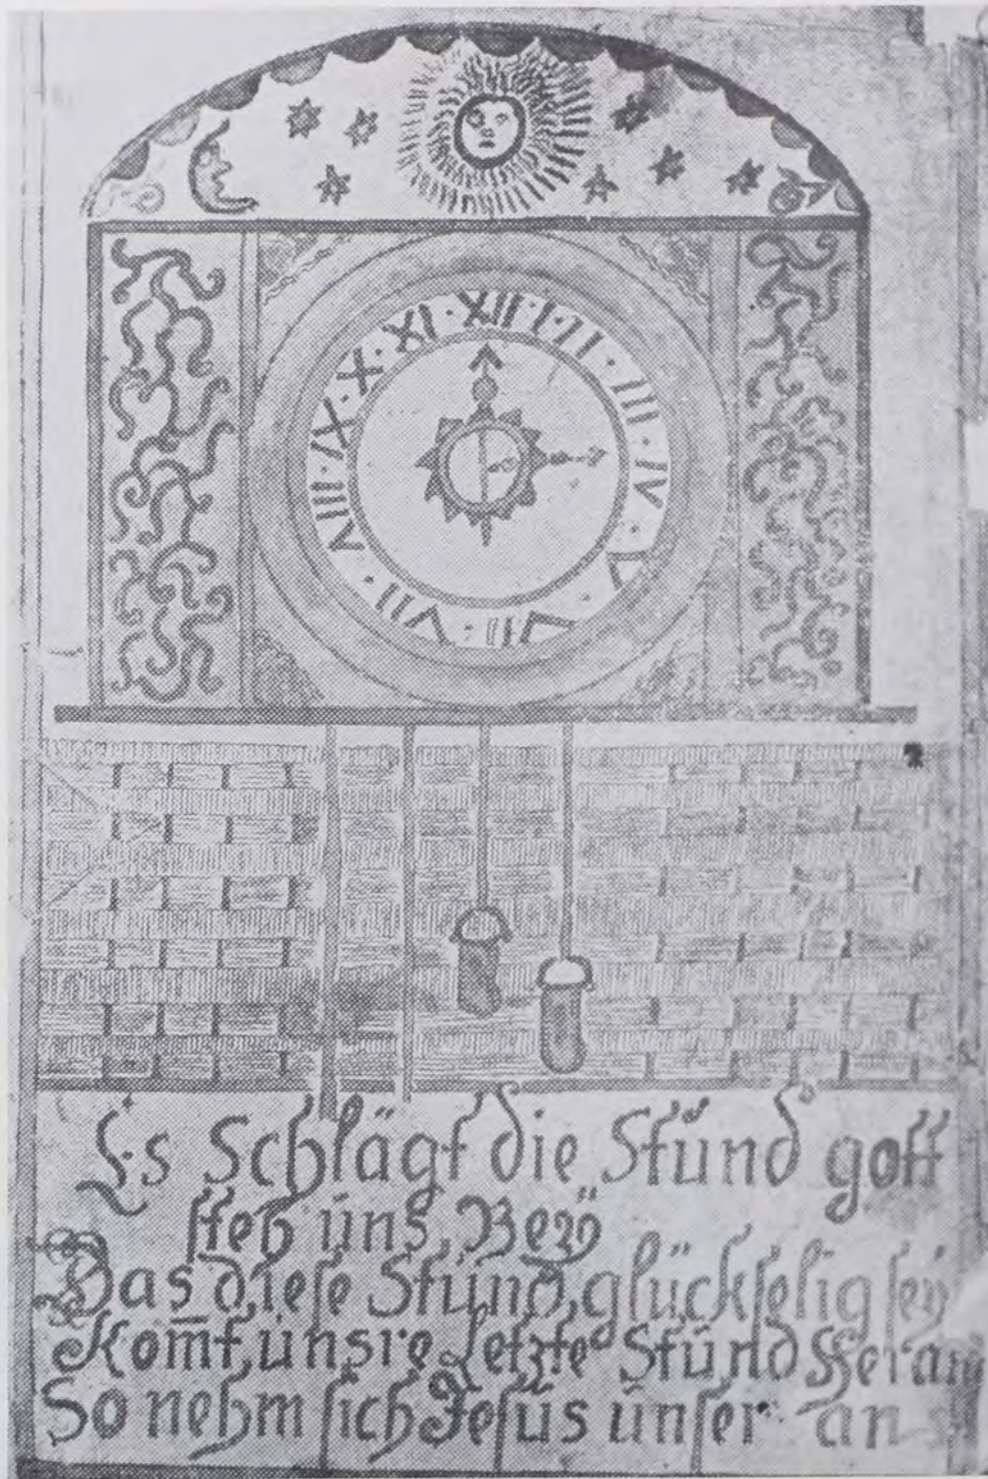 XII · I · II · III · IV · V · VI · VII · VIII · IX · X · XI ·
Es Schlägt die Stŭnd gott
steh ŭns Beÿ
Das diese Stŭnd glückselig seÿ
Kom̅t ŭnsre Letzte Stŭnd Heran
So nehm sich Jesŭs ŭnser an